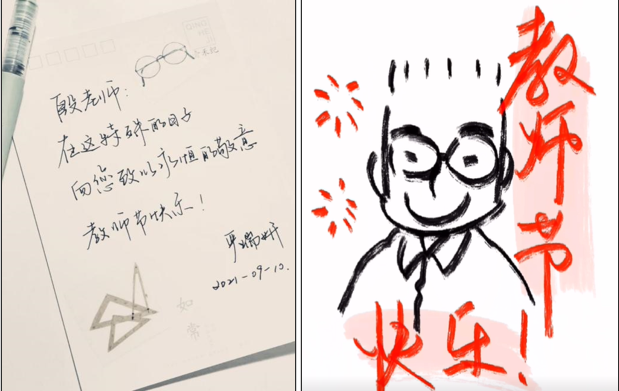 殷老师：
在这特殊的日子
向您致以永恒的敬意
教师节快乐！
2021-09-10.
如常
教师节
快乐！